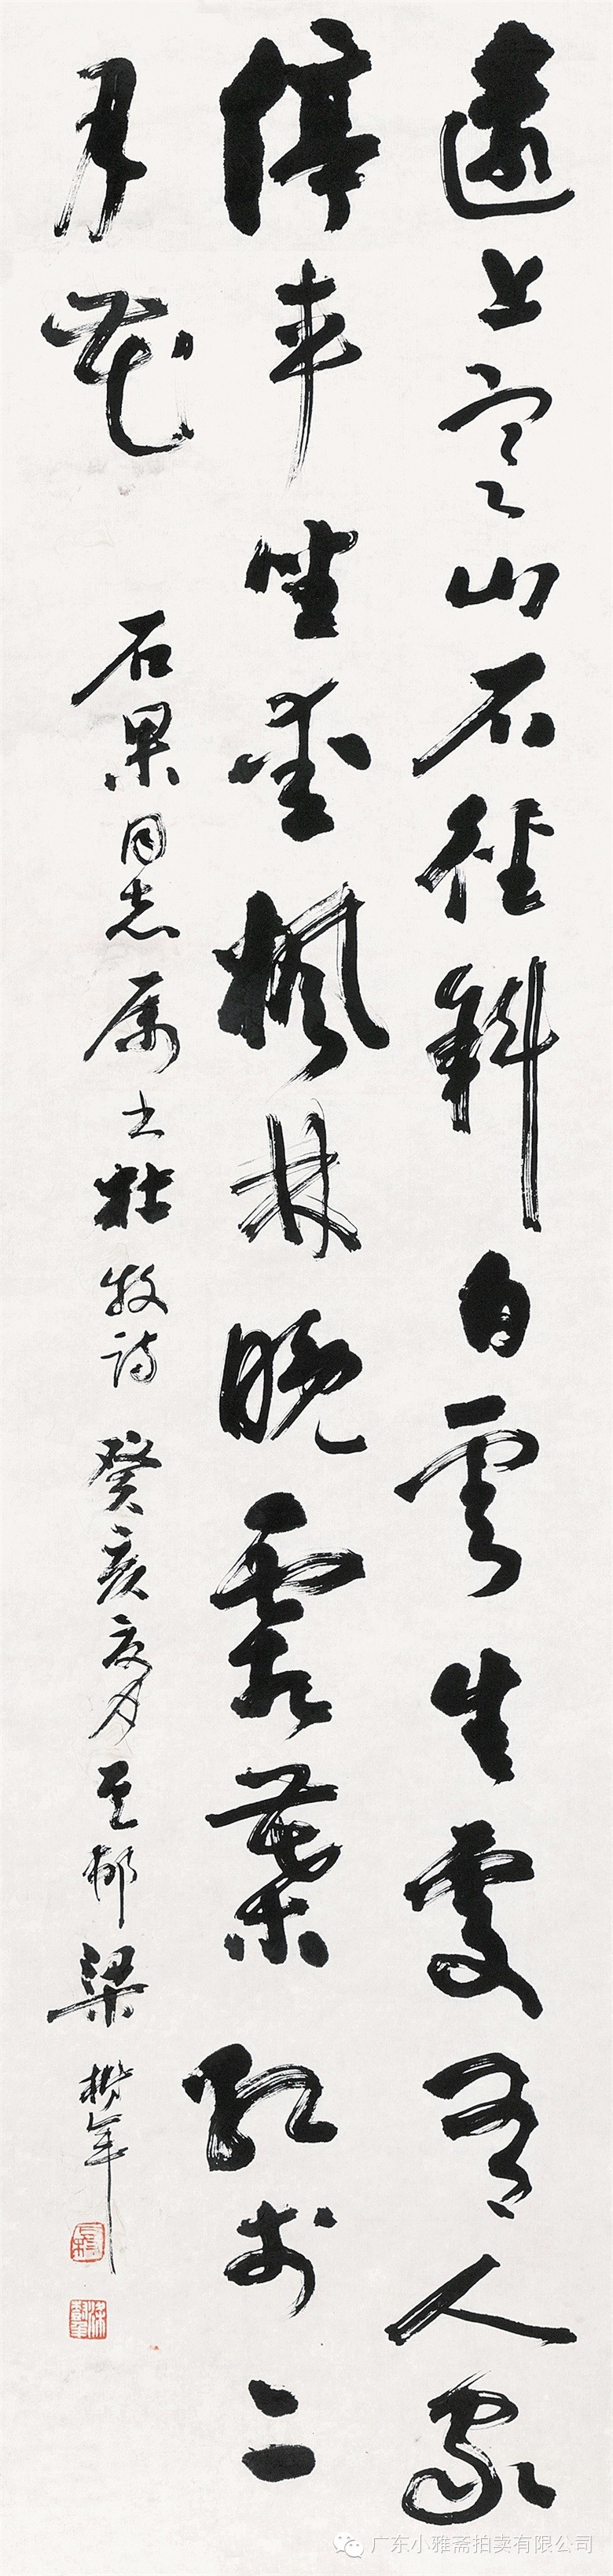 遠上寒山石徑斜白雲生處有人家
停車坐愛楓林晚霜葉紅於二
月花
石果同志属书杜牧詩 癸亥夏月 邨梁年
广东小雅斋拍卖有限公司